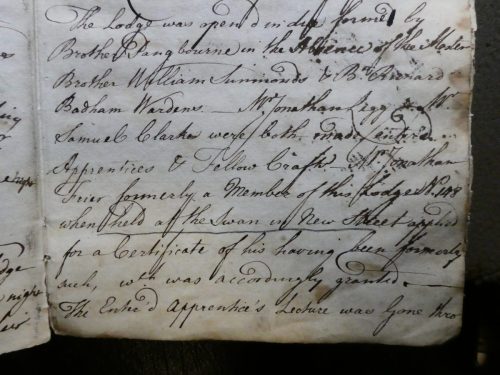 The Lodge was opend in due form by
Brother Pangbourne in the Absence of the Master
Brother William Simmonds & Br. Richard
Badham Wardens — Mr. Jonathan Legg & Mr
Samuel Clarke were both made enter'd
Apprentices & Fellow Crafts — Mr. Jonathan
Frier formerly a Member of this Lodge No.
when held at the Swan in New Street applied
for a Certificate of his having been formerly
such, wch. was accordingly granted —
The Enter'd Apprentice's Lecture was Gone thro
night